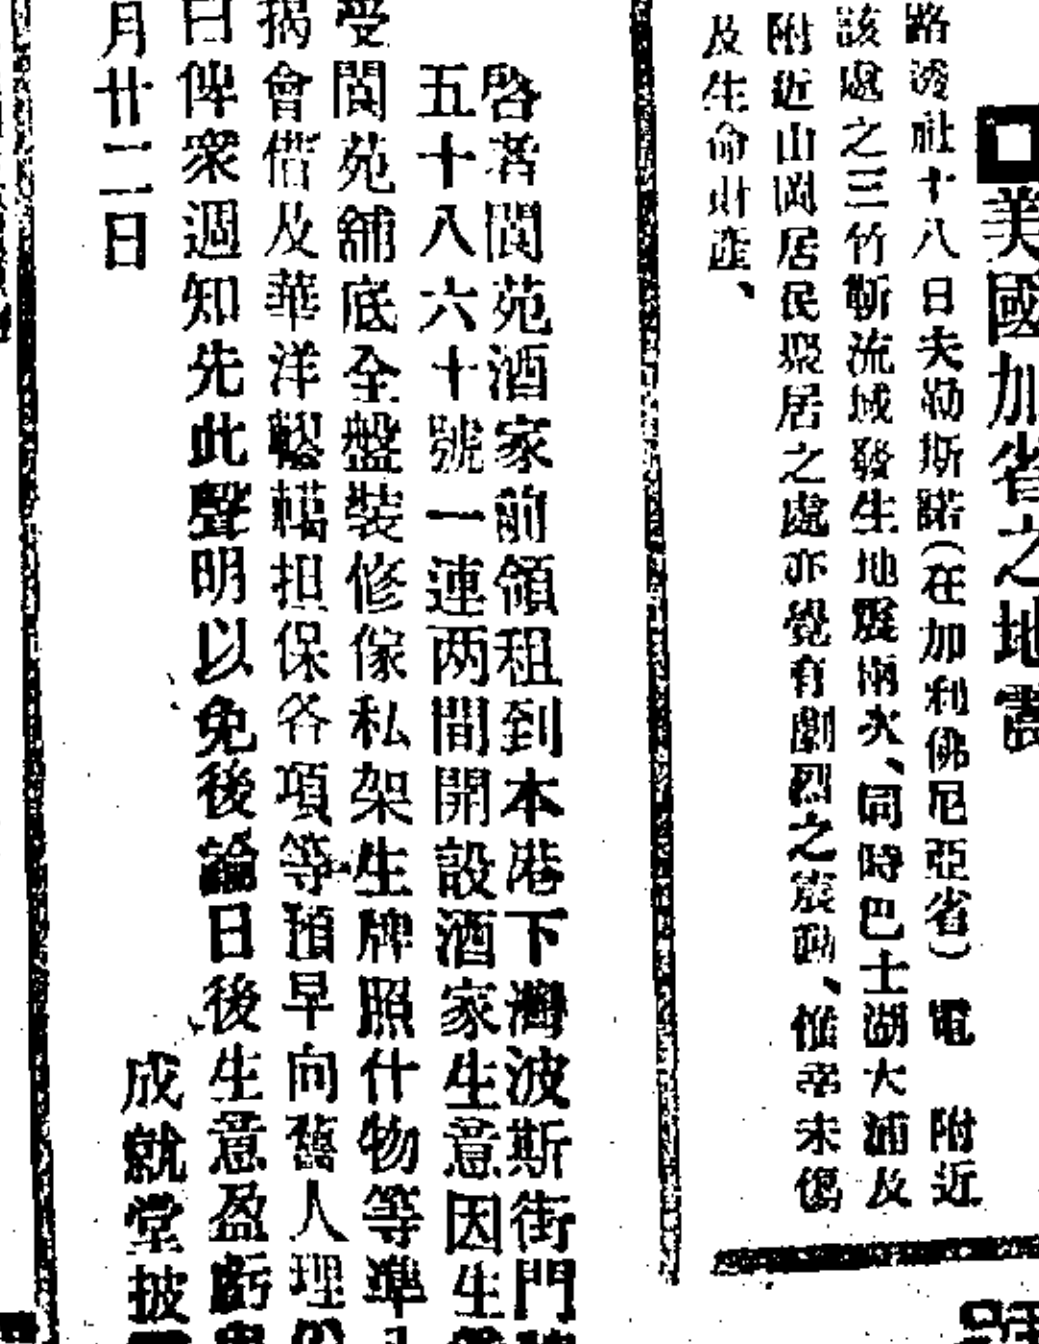 美國加省之地震
路透社十八日夫勒斯諾(在加利佛尼亞省)電 附近
該處之三竹靳流域發生地震兩次、同時巴士湖大浦及
附近山岡居民聚居之處亦覺有劇烈之震動、惟幸未傷
及生命財產、
啓者閬苑酒家前領租到本港下灣波斯街門
五十八六十號一連两間開設酒家生意因生
受閬苑舖底全盤裝修傢私架生牌照什物等準
揭會借及華洋轇轕担保各項等預早向舊人理
日俾衆週知先此聲明以免後論日後生意盈虧
月廿二日
成就堂披